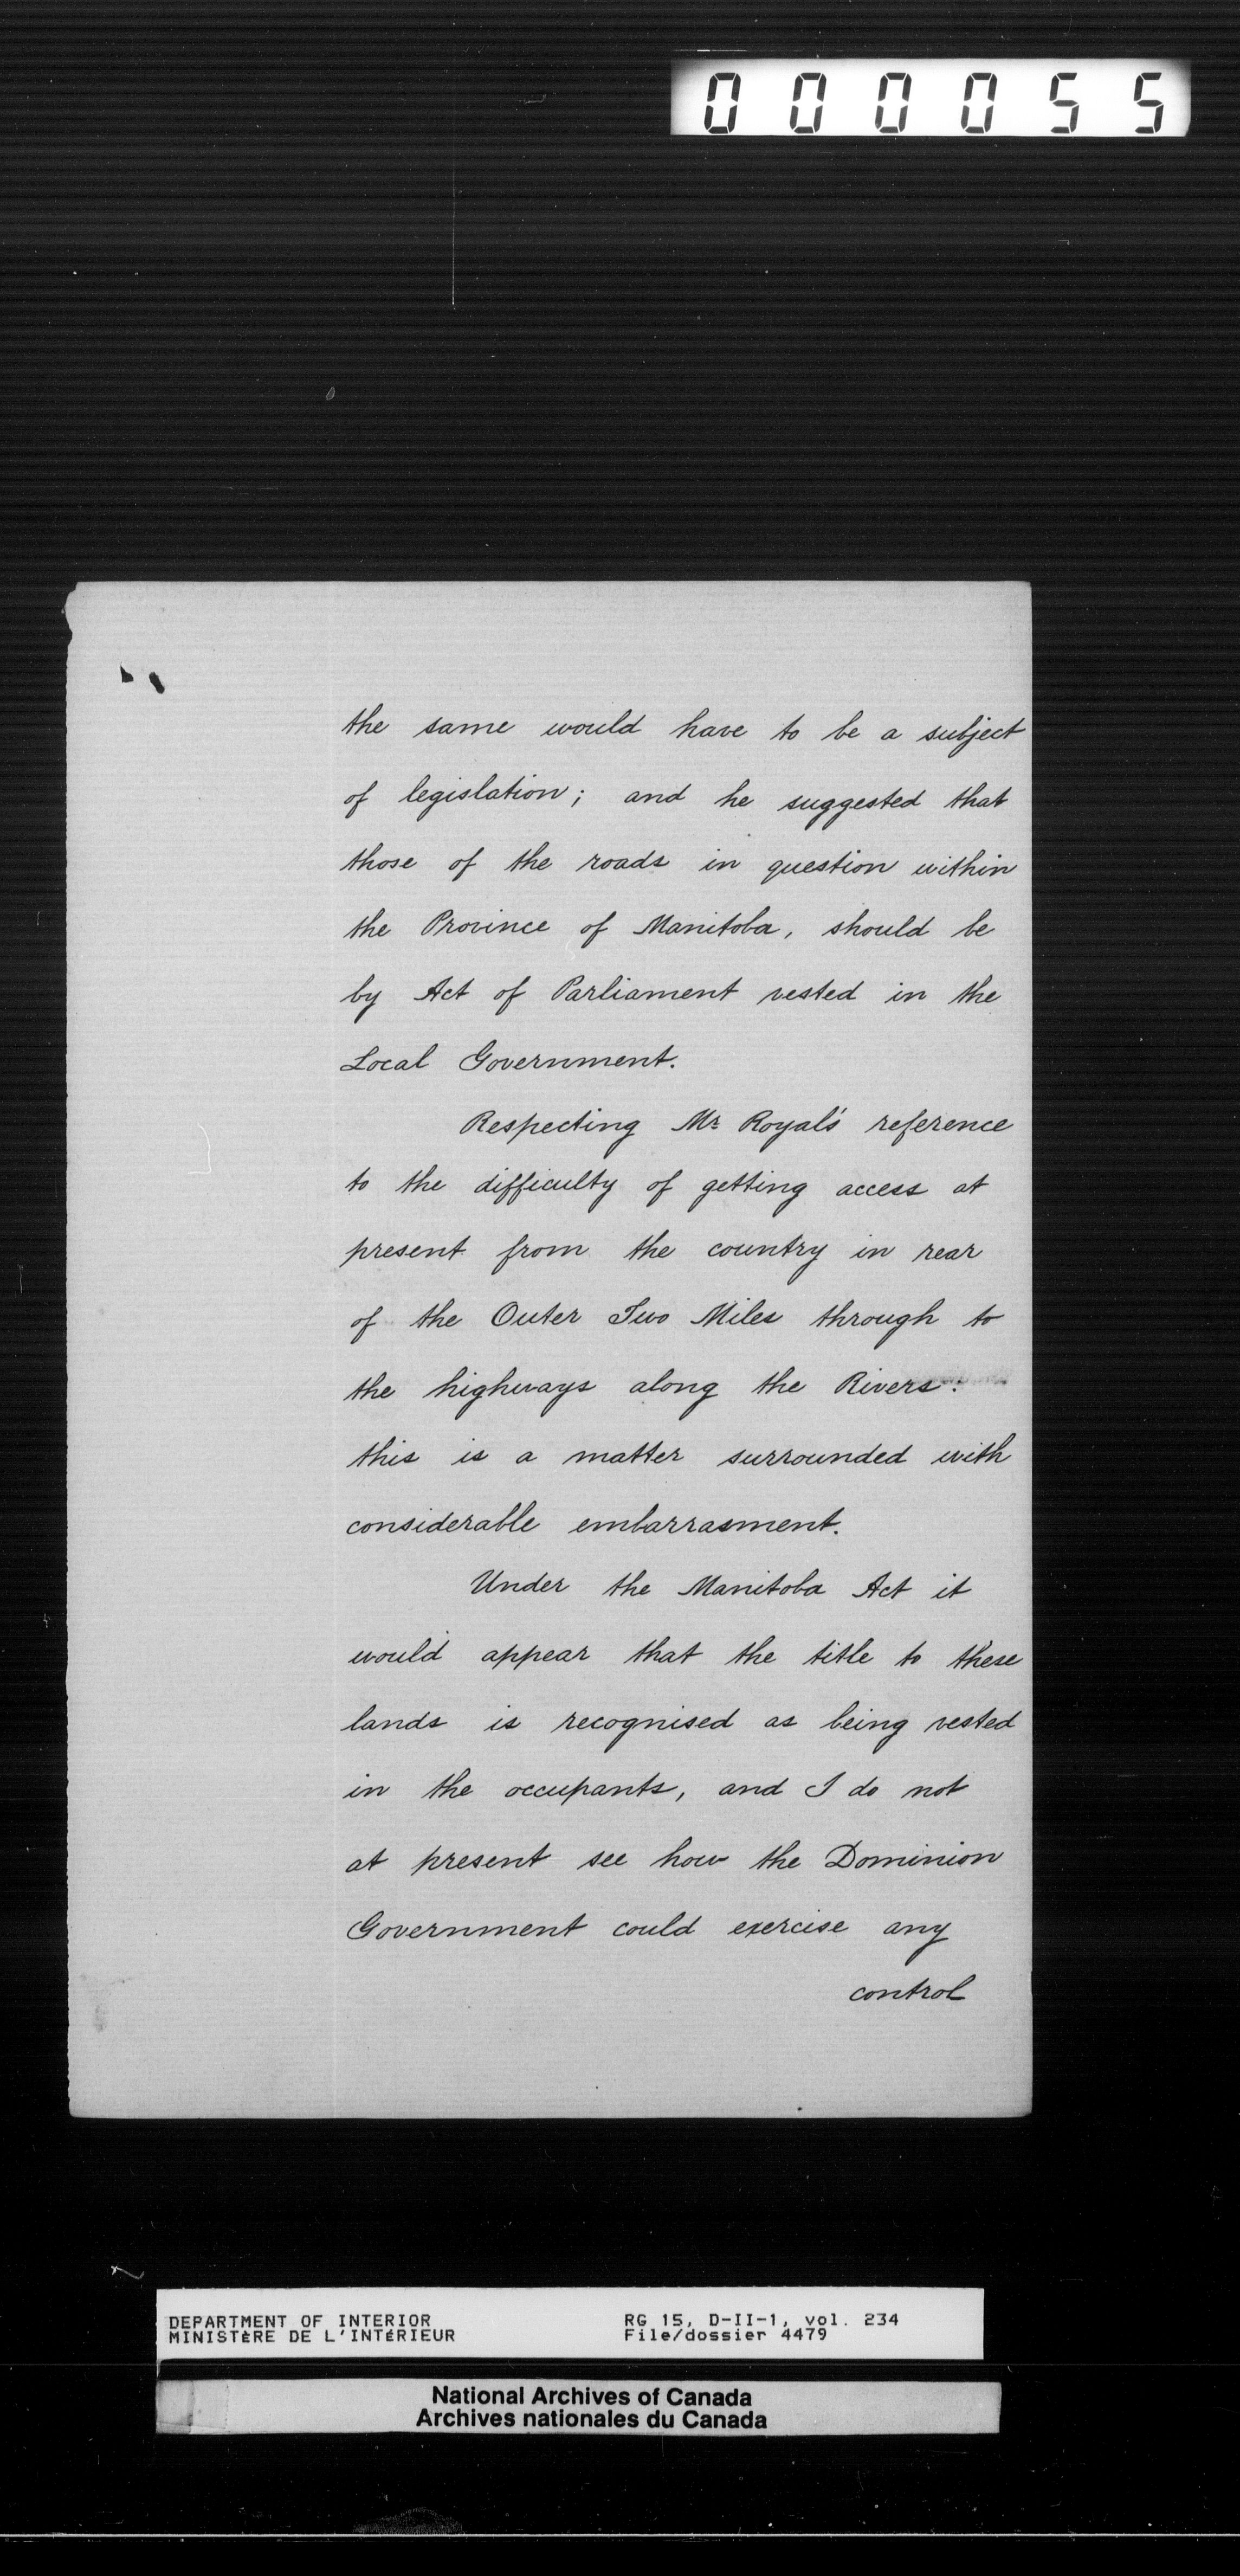 000055
the same would have to be a subject
of legislation; and he suggested that
those of the roads in question within
the Province of Manitoba, should be
by Act of Parliament vested in the
Local Government.
Respecting Mr Royal's reference
to the difficulty of getting access at
present from the country in rear
of the Outer Two Miles through to
the highways along the Rivers:
this is a matter surrounded with
considerable embarrasment.
Under the Manitoba Act it
would appear that the title to these
lands is recognised as being vested
in the occupants, and I do not
at present see how the Dominion
Government could exercise any
control
DEPARTMENT OF INTERIOR RG 15, D-II-1, vol. 234
MINISTÈRE DE L'INTÉRIEUR File/dossier 4479
National Archives of Canada
Archives nationales du Canada